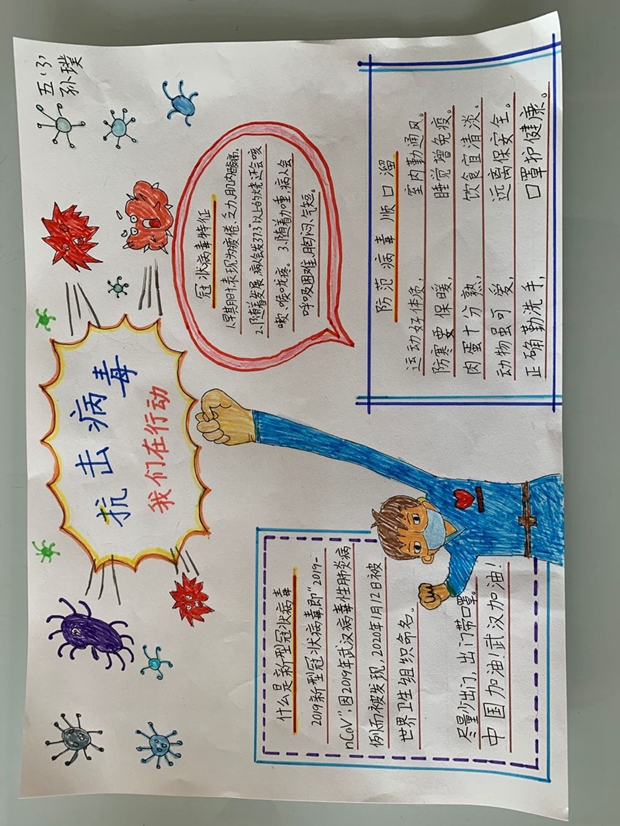 五(3)
孙璞
抗击病毒
我们在行动
什么是新型冠状病毒
2019新型冠状病毒即"2019-
nCoV",因2019年武汉病毒性肺炎病
例而被发现,2020年1月12日被
世界卫生组织命名。
尽量少出门,出门带口罩。
中国加油!武汉加油!
冠状病毒特征
1.早期时表现为疲倦、乏力,肌肉酸痛。
2.随着发展,病人会发37.3°以上的烧,还会咳
嗽喉咙疼。3.随着加重,病人会
呼吸困难,胸闷、气短。
防范病毒顺口溜
运动好体质, 室内勤通风。
防寒要保暖, 睡觉增免疫。
肉蛋十分熟, 饮食宜清淡。
动物虽可爱, 远离保安全。
正确勤洗手, 口罩护健康。